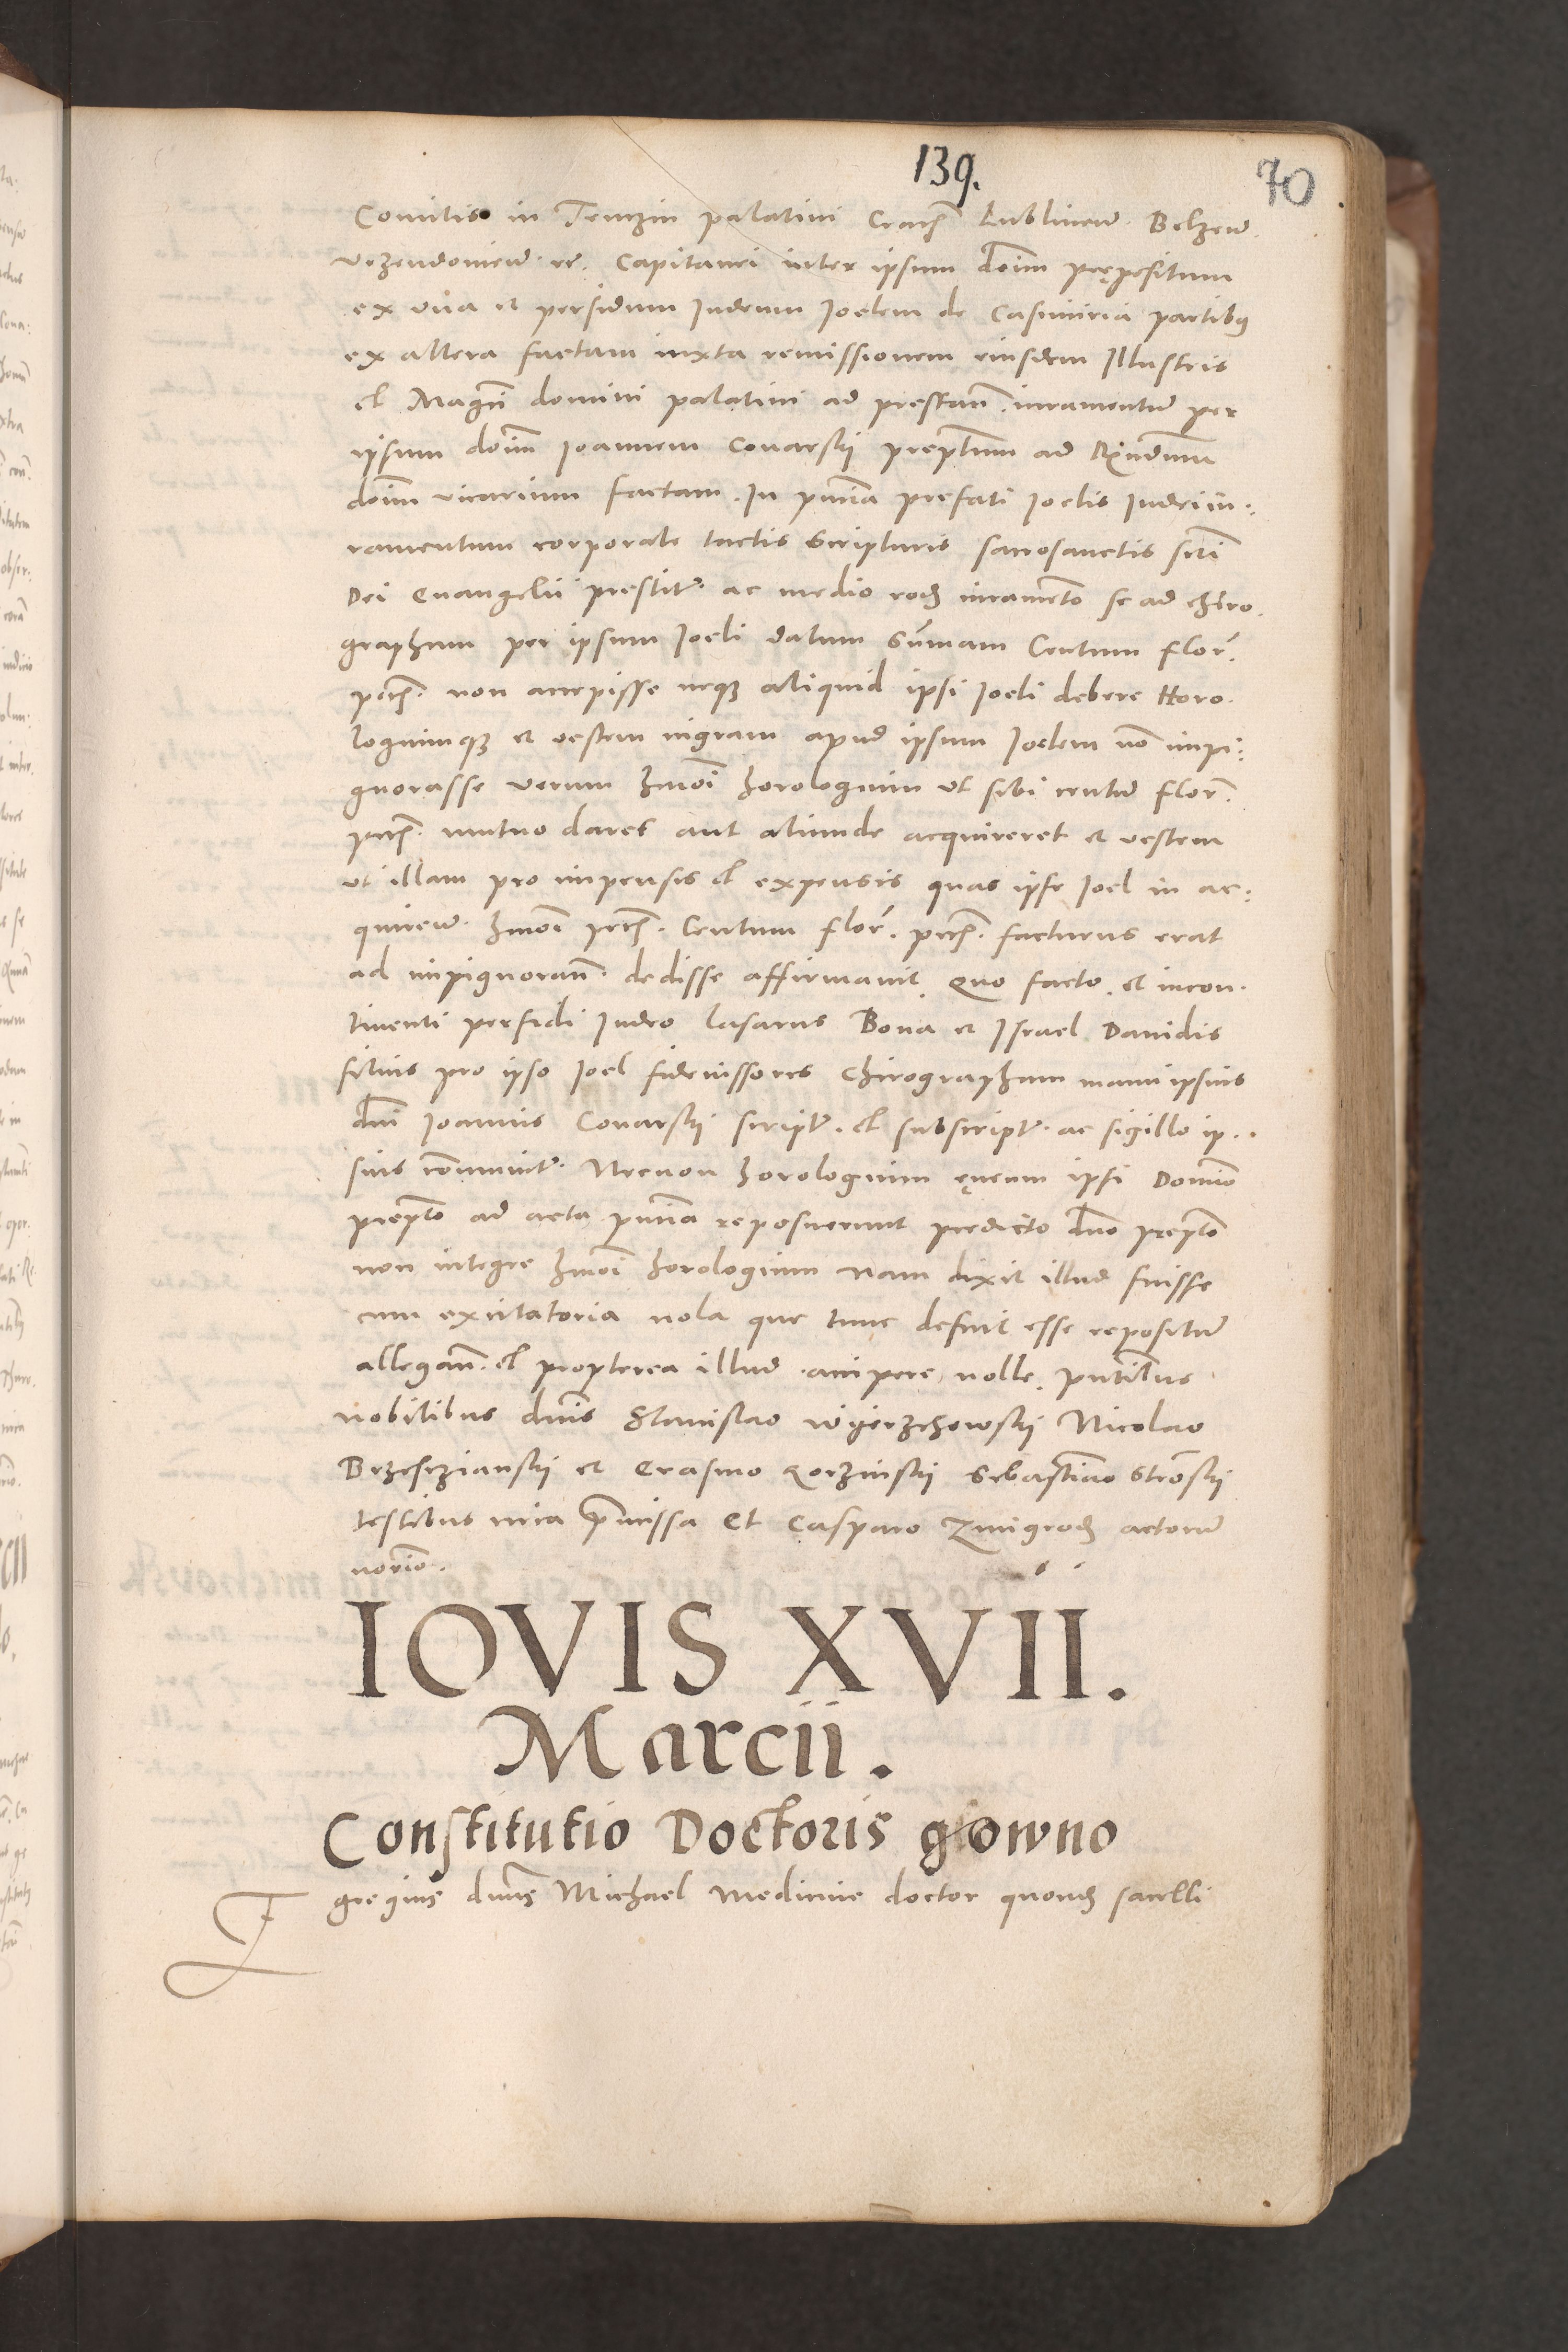 139.
70
Comitis in Tenczin palatini Craci Lublinen Belzen
vrzendouien re. Capitanei inter ipsum dnm prępositum
ex vna et perfidum Iudeum Ioelem de Casimiria partibus
ex altera factam iuxta remissionem eiusdem Illustris
et Magci domini palatini ad prestan. iuramentum per
ipsum dnm Ioannem Conarskj preptum ad Rndum
dnm vicarium factam. In pntia prefati Ioelis Iudei iu:
ramentum corporale tactis Scripturis sacrosanctis scti
Dei Euangelii prestitit ac medio eod iuramento se ad chiro
graphum per ipsum Ioeli datum Summam Centum flor.
pecun. non accepisse neque aliquid ipsi Ioeli debere Horo.
logiumque et vestem nigram apud ipsum Ioelem no impi:
gnorasse verum hmoi horologium vt sibi centum flor.
pecun. mutuo daret aut aliunde acquireret et vestem
vt illam pro impensis et expensis quas ipse Ioel in ac:
quiren. hmoi pecun. Centum flor. pecun. facturus erat
ad impignoran. dedisse affirmauit. Quo facto et incon.
tinenti perfidi Iudeo Lasarus Bona et Israel Dauidis
filius pro ipso Ioel fideiussores Chirographum manu ipsius
dni Ioannis Conarskj script. et subscript. ac sigillo ip.
sius communit. Necnon horologium ęneum ipsi Domino
prepto ad acta pntia reposuerunt predicto dno prepto
non integre hmoi horologium nam dixit illud fuisse
cum excitatoria nola que tunc defuit esse repositum
allegan. et propterea illud accipere nolle. pntibus
nobilibus dnis Stanislao wyerzchowskj Nicolao
Brzesczianskj et Erasmo Korzinskj Sebastiano Stronskj
testibus circa premissa Et Casparo Zmigrod actorum
notario.
IOVIS XVII.
Marcii.
Constitutio Doctoris głowno
Egregius dnus Michael Medicine doctor quond famelli